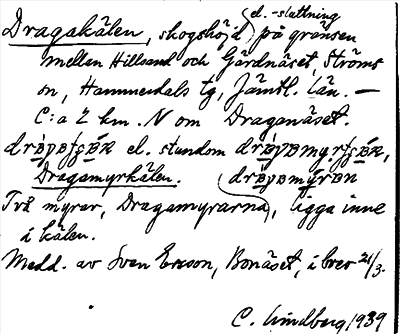 el. -slättning
Dragakälen, skogshöjd på gränsen
mellan Hillsand och Gärdnäset, Ströms
sn, Hammerdals tg, Jämtl. län. —
C:a 2 km. N om Draganäset.
el. stundom
Dragamyrkälen.
Två myrar, Dragamyrarna, ligga inne
i kälen.
Medd. av Sven Ersson, Bonäset, i brev 21/3.
C. Lindberg 1939